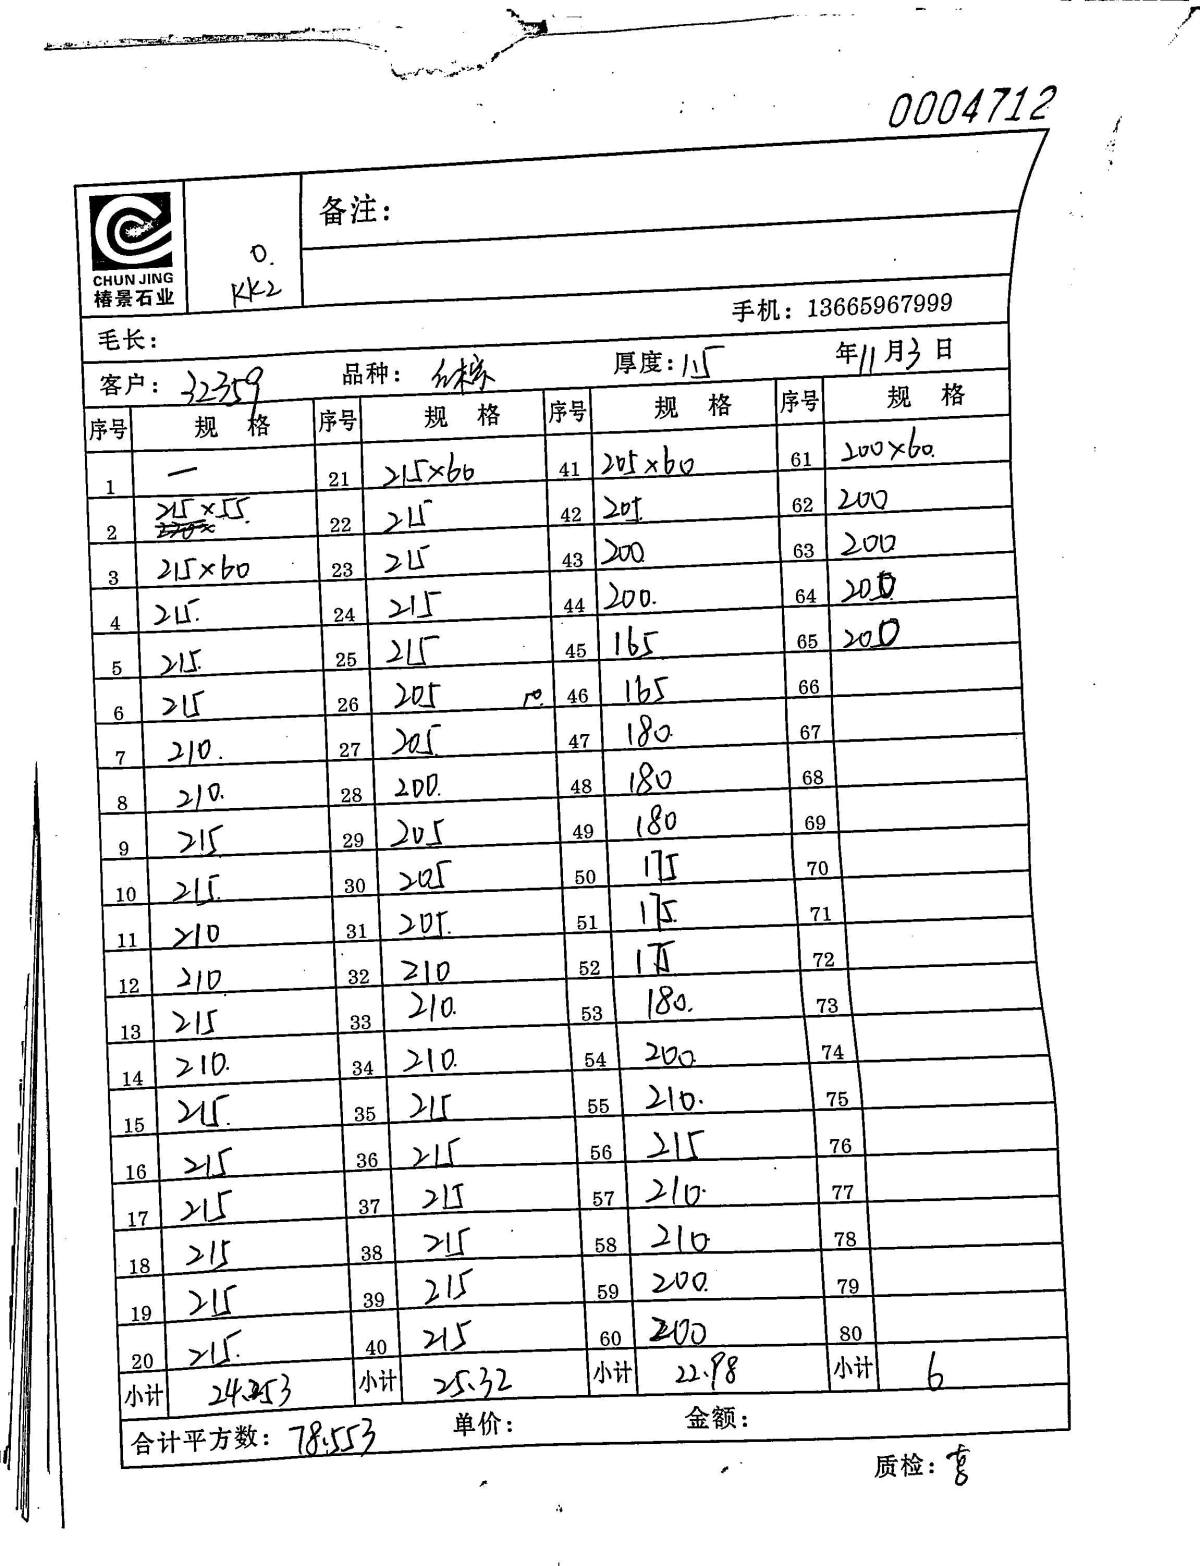 0004712
备注：
CHUN JING
椿景石业
0.
KK2
手机：13665967999
毛长：
客户：32359 品种： 厚度：1.5 年11月3日
序号 规格 序号 规格 序号 规格 序号 规格
1 — 21 215×60 41 205×60 61 200×60.
2 215×55. 22 215 42 205. 62 200
3 215×60 23 215 43 200 63 200
4 215. 24 215 44 200. 64 200
5 215. 25 215 45 165 65 200
6 215 26 205 50. 46 165 66
7 210. 27 205. 47 180. 67
8 210. 28 200. 48 180 68
9 215 29 205 49 180 69
10 215. 30 205 50 175 70
11 210 31 205. 51 175. 71
12 210. 32 210 52 175 72
13 215 33 210. 53 180. 73
14 210. 34 210. 54 200. 74
15 215. 35 215 55 210. 75
16 215 36 215 56 215 76
17 215 37 215 57 210. 77
18 215 38 215 58 210 78
19 215 39 215 59 200. 79
20 215. 40 215 60 200 80
小计 24.253 小计 25.32 小计 22.98 小计 6
合计平方数：78.553 单价： 金额：
质检：